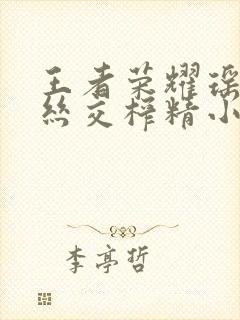 王者荣耀瑶
丝交榨精小
李亭哲